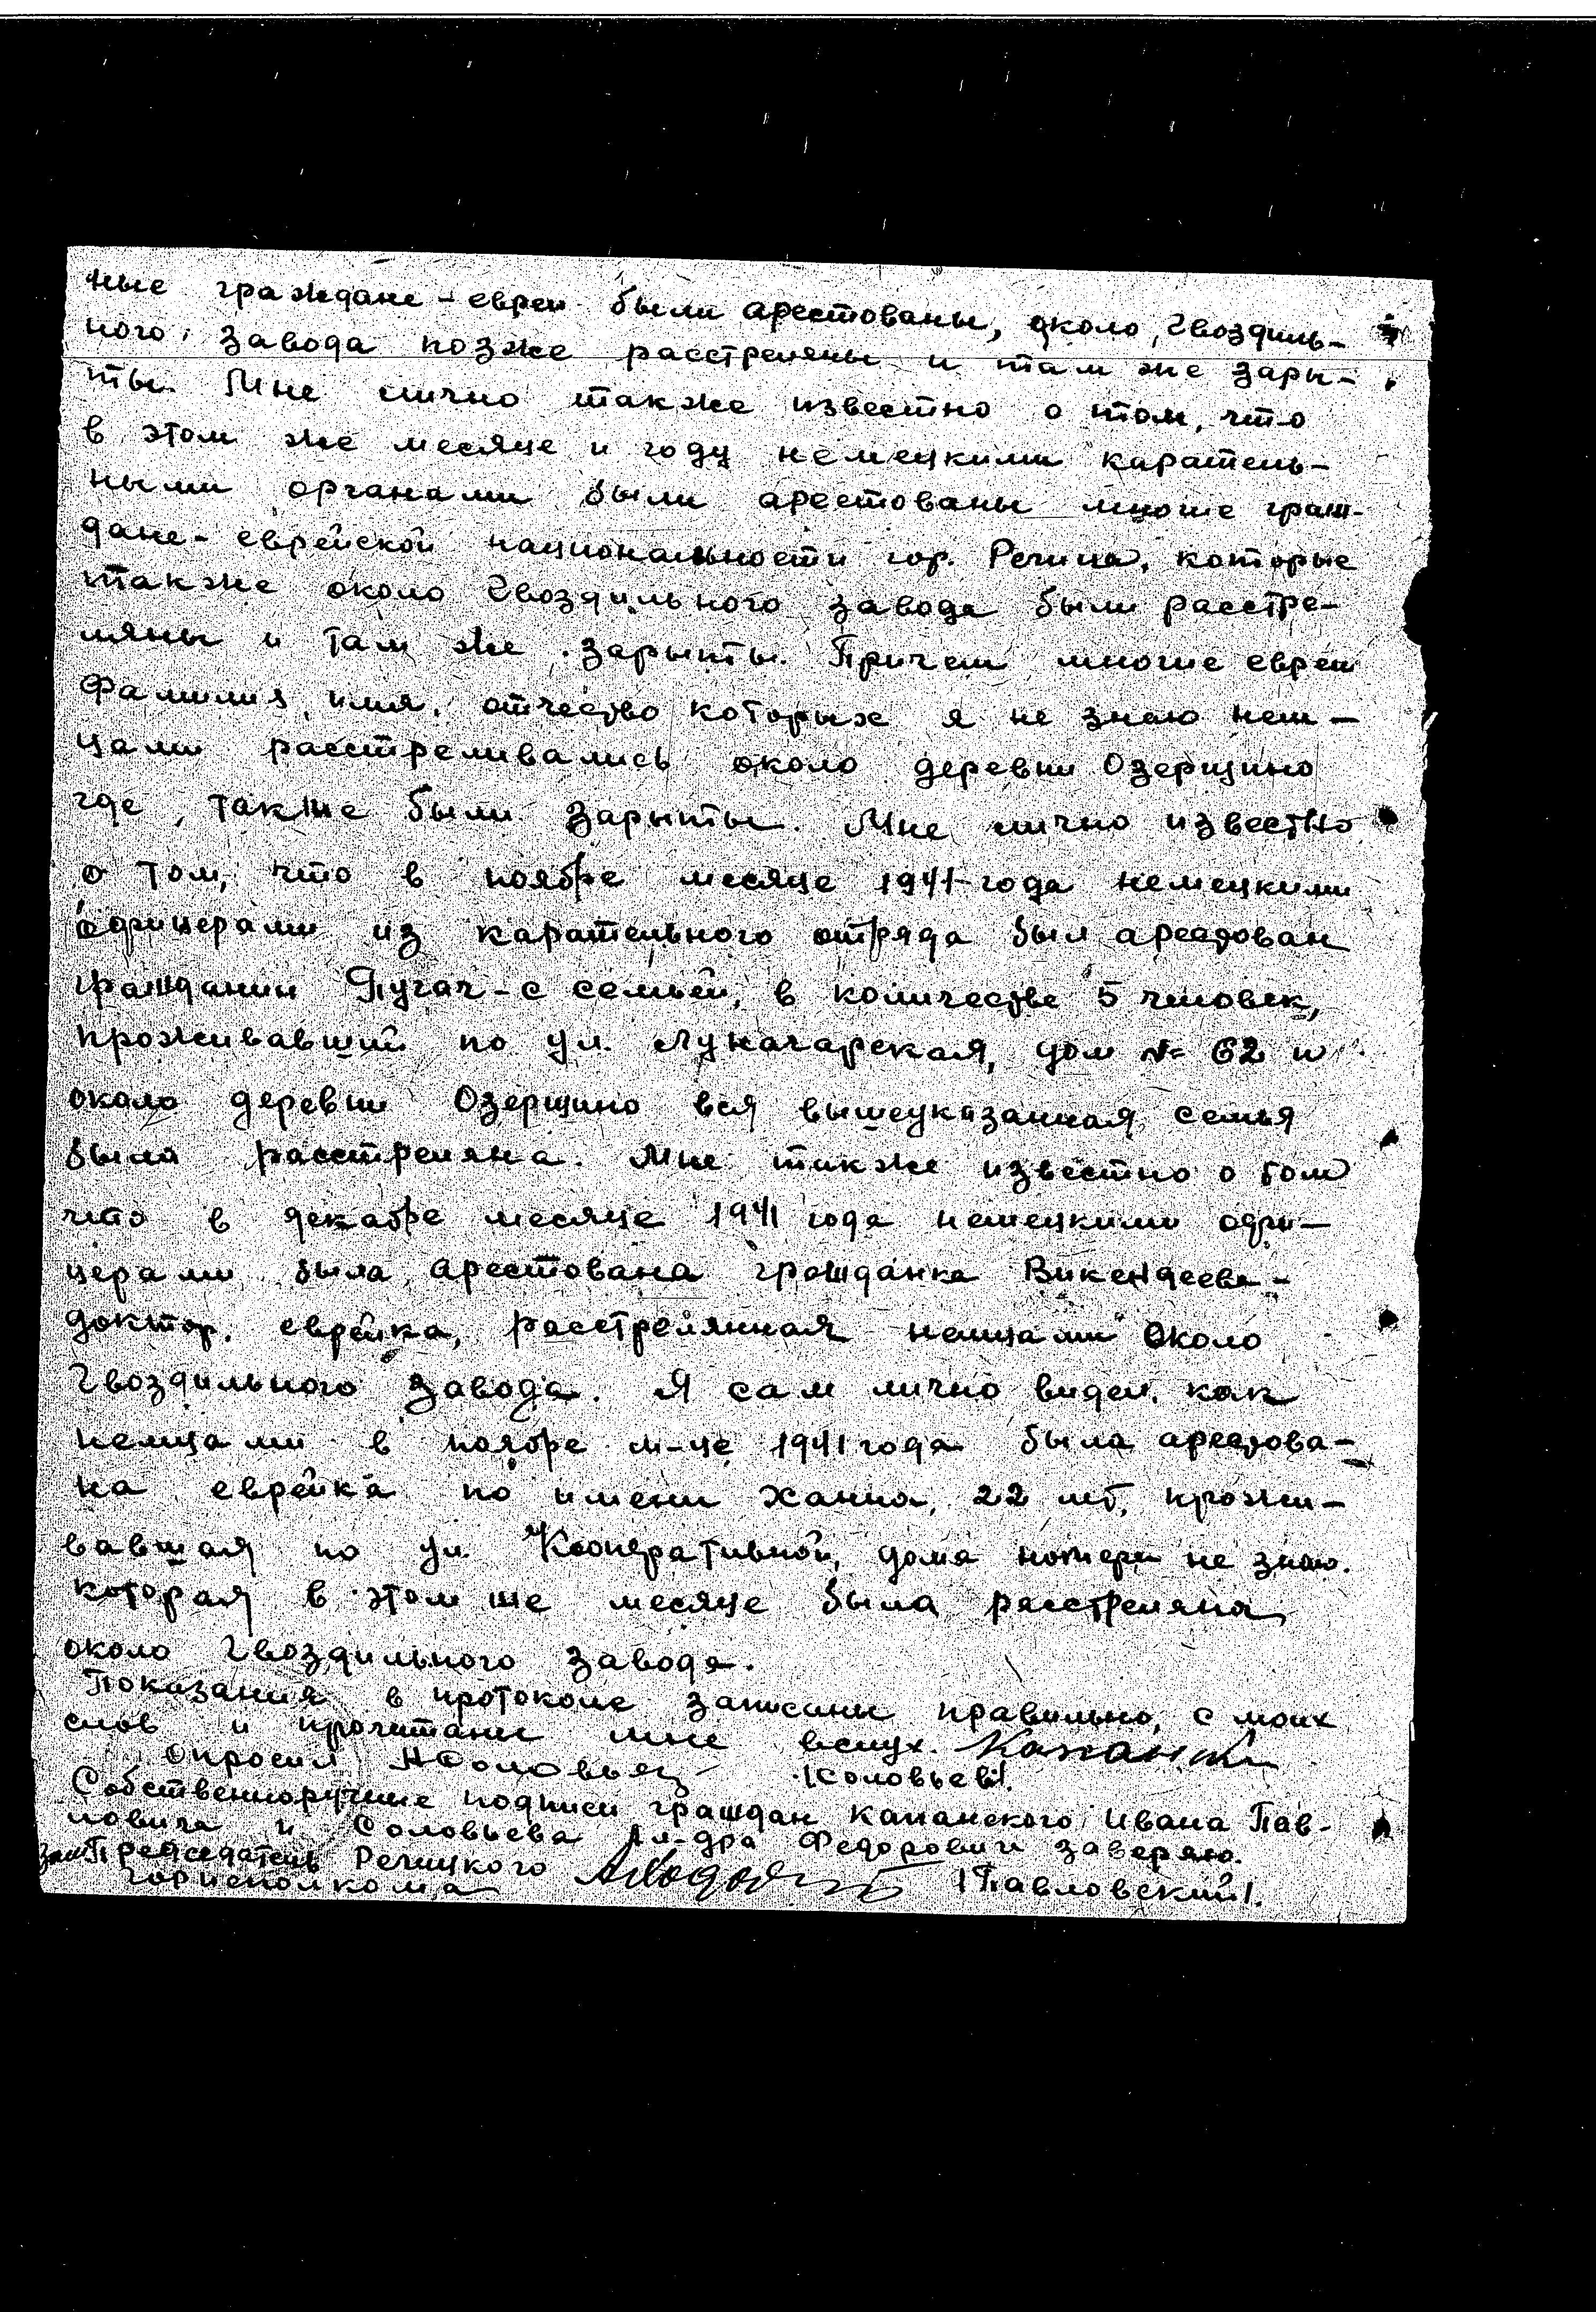 ные граждане - евреи были арестованы, около Гвоздиль-
ного завода позже расстреляны и там же зары-
ты. Мне лично также известно о том, что
в этом же месяце и году немецкими каратель-
ными органами были арестованы многие граж-
дане - еврейской национальности гор. Речица, которые
также около Гвоздильного завода были расстре-
ляны и там же зарыты. Причем многие евреи
фамилия, имя, отчество которых я не знаю нем-
цами расстреливались около деревни Озерщино
где также были зарыты. Мне лично известно
о том, что в ноябре месяце 1941 года немецкими
офицерами из карательного отряда был арестован
гражданин Пугач - с семьей, в количестве 5 человек,
проживавший по ул. Луначарская, дом № 62 и
около деревни Озерщино вся вышеуказанная семья
была расстреляна. Мне также известно о том
что в декабре месяце 1941 года немецкими офи-
церами была арестована гражданка Викендеева -
доктор, еврейка, расстрелянная немцами около
Гвоздильного завода. Я сам лично видел, как
немцами в ноябре м-це 1941 года была арестова-
на еврейка по имени Ханна, 22 лет, прожи-
вавшая по ул. Кооперативной, дома номера не знаю.
которая в этом же месяце была расстреляна
около Гвоздильного завода.
Показания в протоколе записаны правильно, с моих
слов и прочитаны мне вслух.
Опросил /Соловьев/.
Собственноручные подписи граждан Капанского Ивана Пав-
ловича и Соловьева Ал-дра Федоровича заверяю.
Зам Председатель Речицкого /Павловский/.
горисполкома